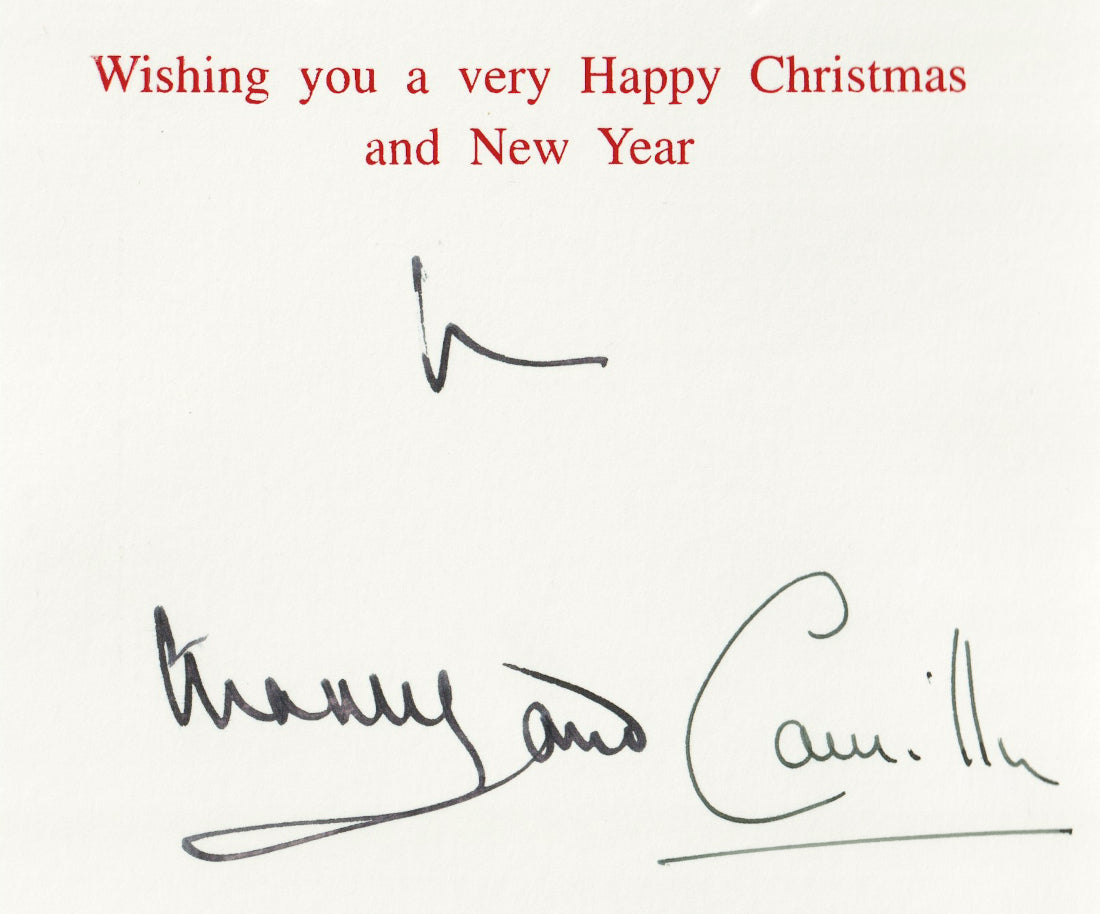 Wishing you a very Happy Christmas
and New Year
and Camilla